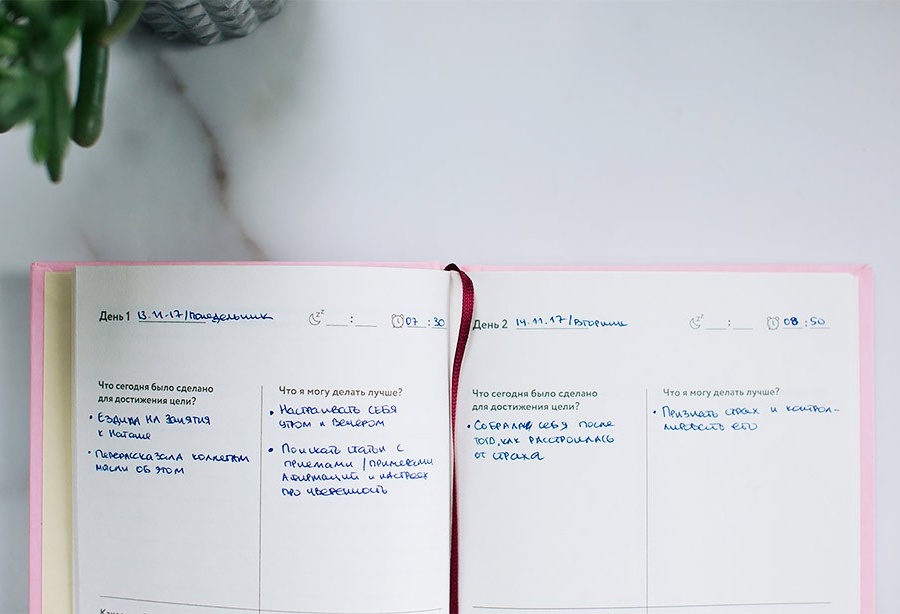 День 1 13.11.17/понедельник
zzz __ : __ 07 : 30
Что сегодня было сделано
для достижения цели?
• Ездила на занятия
к Наташе
• Пересказала коллегам
мысли об этом
Что я могу делать лучше?
• Настраивать себя
утром и вечером
• Поискать статьи с
приемами / примерами
аффирмаций и настроев
про уверенность
День 2 14.11.17/вторник
zzz __ : __ 08 : 50
Что сегодня было сделано
для достижения цели?
• Собралась себя после
того, как расстроилась
от страха
Что я могу делать лучше?
• Признать страх и контрол-
лировать его